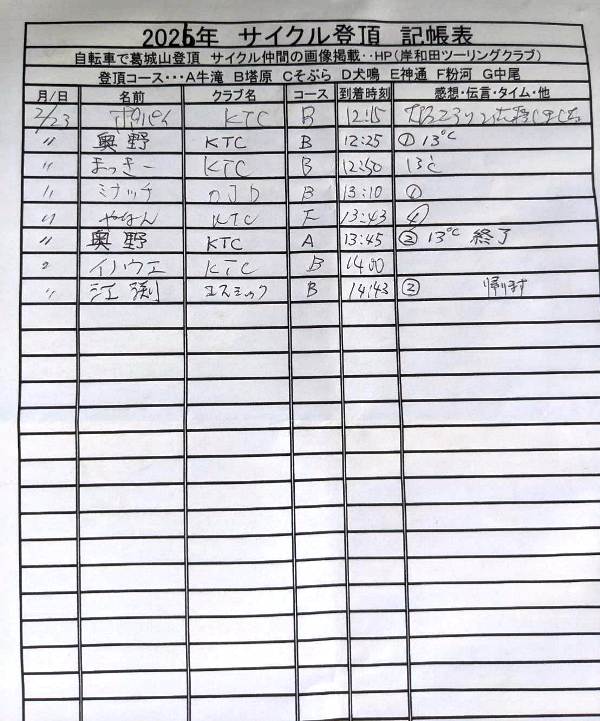 2026年 サイクル登頂 記帳表
自転車で葛城山登頂 サイクル仲間の画像掲載‥HP(岸和田ツーリングクラブ)
登頂コース･･･A牛滝 B塔原 Cそぶら D犬鳴 E神通 F粉河 G中尾
月/日 名前 クラブ名 コース 到着時刻 感想・伝言・タイム・他
2/23 ポパイ KTC B 12:15
〃 奥野 KTC B 12:25 ① 13℃
〃 まっきー KTC B 12:50 13℃
〃 ミナッチ B 13:10 ①
〃 やなん KTC F 13:43 ④
〃 奥野 KTC A 13:45 ② 13℃ 終了
〃 イハウエ KTC B 14:00
〃 江渕 エスミック B 14:43 ② 帰ります